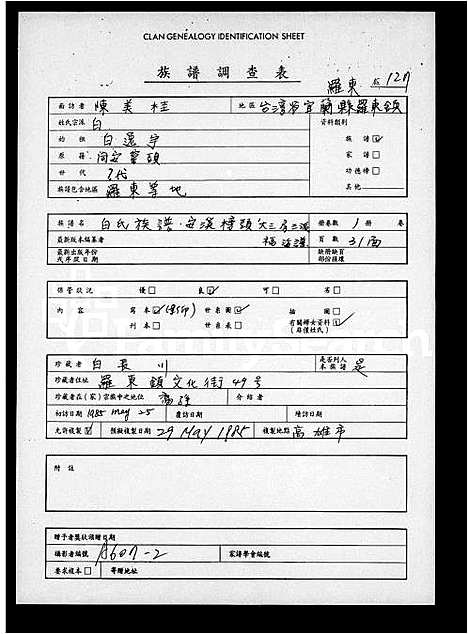 CLAN GENEALOGY IDENTIFICATION SHEET
族譜調查表
羅東 127
面訪者 陳美桂 地區 台灣省宜蘭縣羅東鎮
姓氏宗派 白 資料類別
始祖 白逸宇 族譜☑
原籍 同安 家譜□
世代 7代 功德榜□
族譜包含地區 羅東等地 其他
族譜名 白氏族譜·安溪 大三房 冊卷數 1冊 卷
最新版本編纂者 頁數 31面
最新出版年份或年版日期 缺冊缺頁部份損壞
保管狀況 優□ 良☑ 可□ 劣□
內容 寫本☑(影印) 世系圖☑ 插圖□
刊本□ 世系表□ 有關婦女資料☑(局僅姓氏)
珍藏者 白長川 是否列入本族譜 是
珍藏者住址 羅東鎮文化街49号
珍藏者在(家)宗族中之地位 介紹者
初訪日期 1985 May 25 覆訪日期 續訪日期
允許複製☑ 預擬複製日期 29 May 1985 複製地點 高雄市
附註
贈予者獎狀頒贈日期
攝影者編號 A607-2 家譜學會編號
要求複本□ 寄贈地址